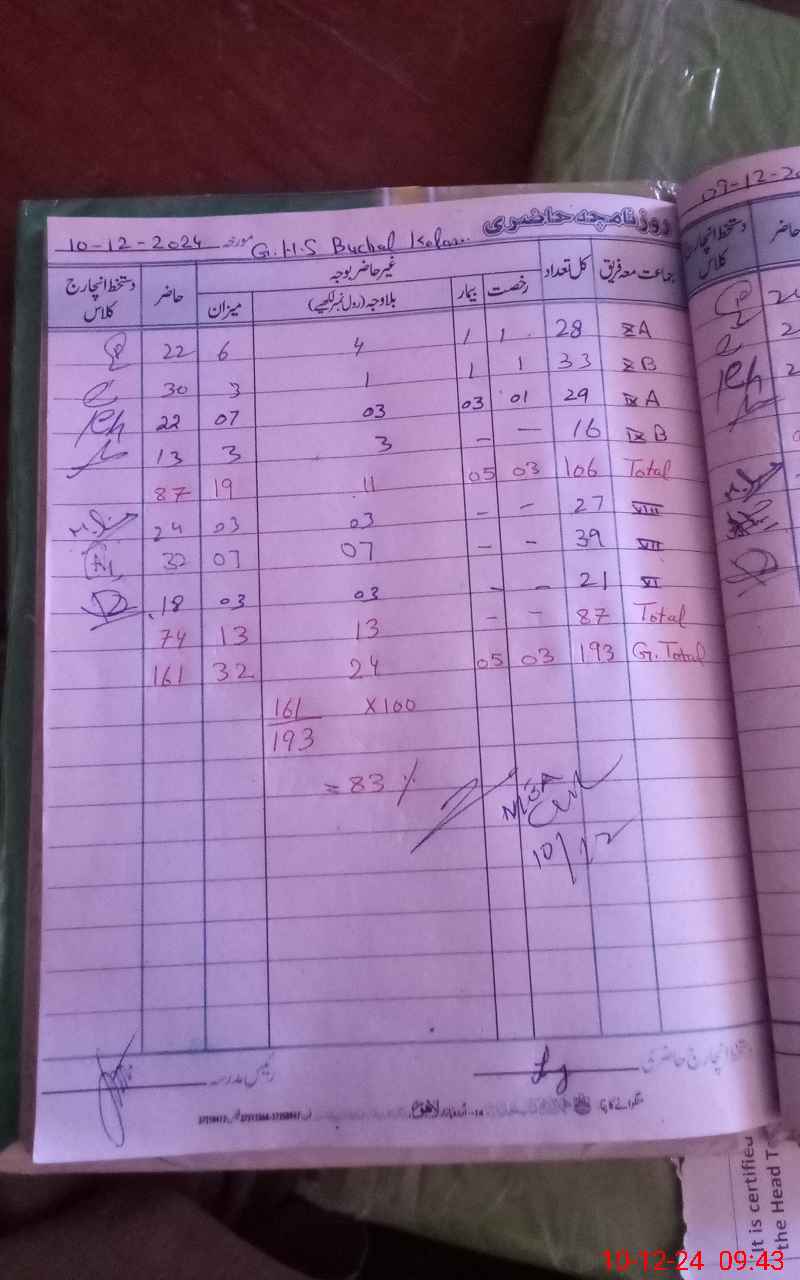 روزنامچہ حاضری
G.H.S Buchal Kalan مورخہ 10-12-2024
جماعت معہ فریق کل تعداد غیر حاضر بوجہ حاضر دستخط انچارج کلاس
رخصت بیمار بلاوجہ (رول نمبر لکھیے) میزان
X A 28 1 1 4 6 22
X B 33 1 1 1 3 30
IX A 29 01 03 03 07 22
IX B 16 – – 3 3 13
Total 106 03 05 11 19 87
VIII 27 – – 03 03 24
VII 39 – – 07 07 32
VI 21 – – 03 03 18
Total 87 – – 13 13 74
G. Total 193 03 05 24 32 161
161 X100
193
= 83 %
MEA
10/12
دستخط انچارج حاضری
رئیس مدرسہ
09-12-20
حاضر
دستخط انچارج کلاس
It is certified
the Head T
10-12-24 09:43